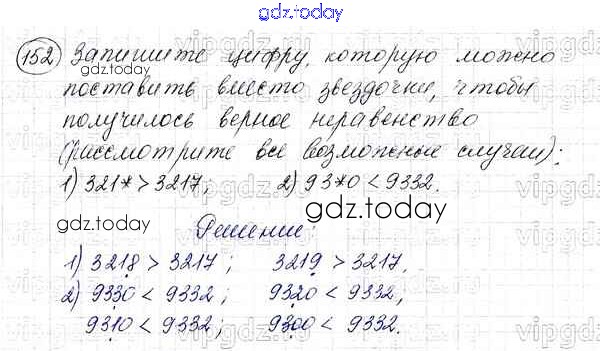 gdz.today
152 Запишите цифру, которую можно
gdz.today
поставить вместо звездочки, чтобы
получилось верное неравенство
(рассмотрите все возможные случаи):
1) 321* > 3217; 2) 93*0 < 9332.
gdz.today gdz.today
Решение:
1) 3218 > 3217; 3219 > 3217,
2) 9330 < 9332; 9320 < 9332;
9310 < 9332; 9300 < 9332.